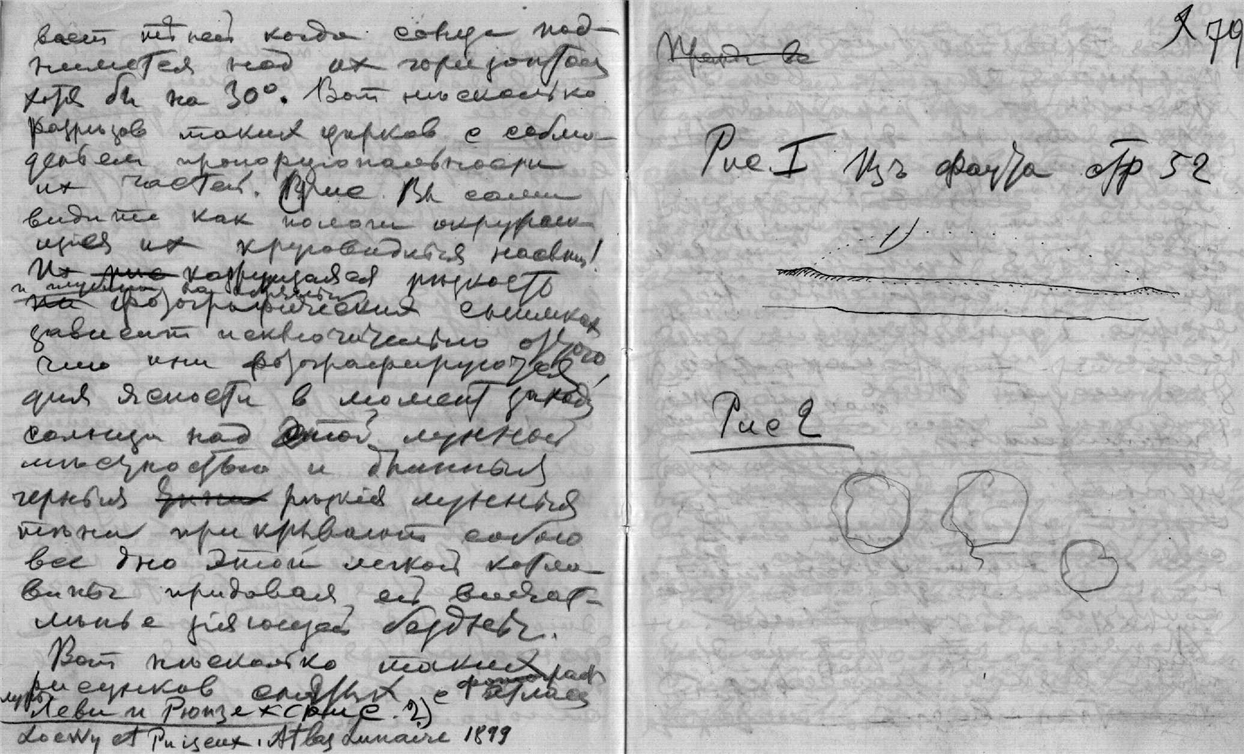 вает тѣней когда солнце под-
нимется над их горизонтом
хотя бы на 30°. Вот нѣсколько
разрѣзов таких цирков с соблю-
деньем пропорциональности
их частей. Рис Вы сами
видите как пологи
их круговидныя насыпи!
кажущаяся рѣзкость
фотографических снимках
зависит исключительно от того
что они фотографируются
для ясности в момент захода
солнца над этой лунной
мѣстностью и длинныя
черныя рѣзкія лунныя
тѣни прикрывают собою
все дно этой легкой котло-
вины придавая ей впечат-
лѣнье зіяющей бездны.
Вот нѣсколько таких
рисунков с фотограф
атласа
Леви и Рис. 2)
Loewy et Puiseux. Atlas Lunaire 1899
79
Рис I Изъ Фаута стр 52
Рис 2